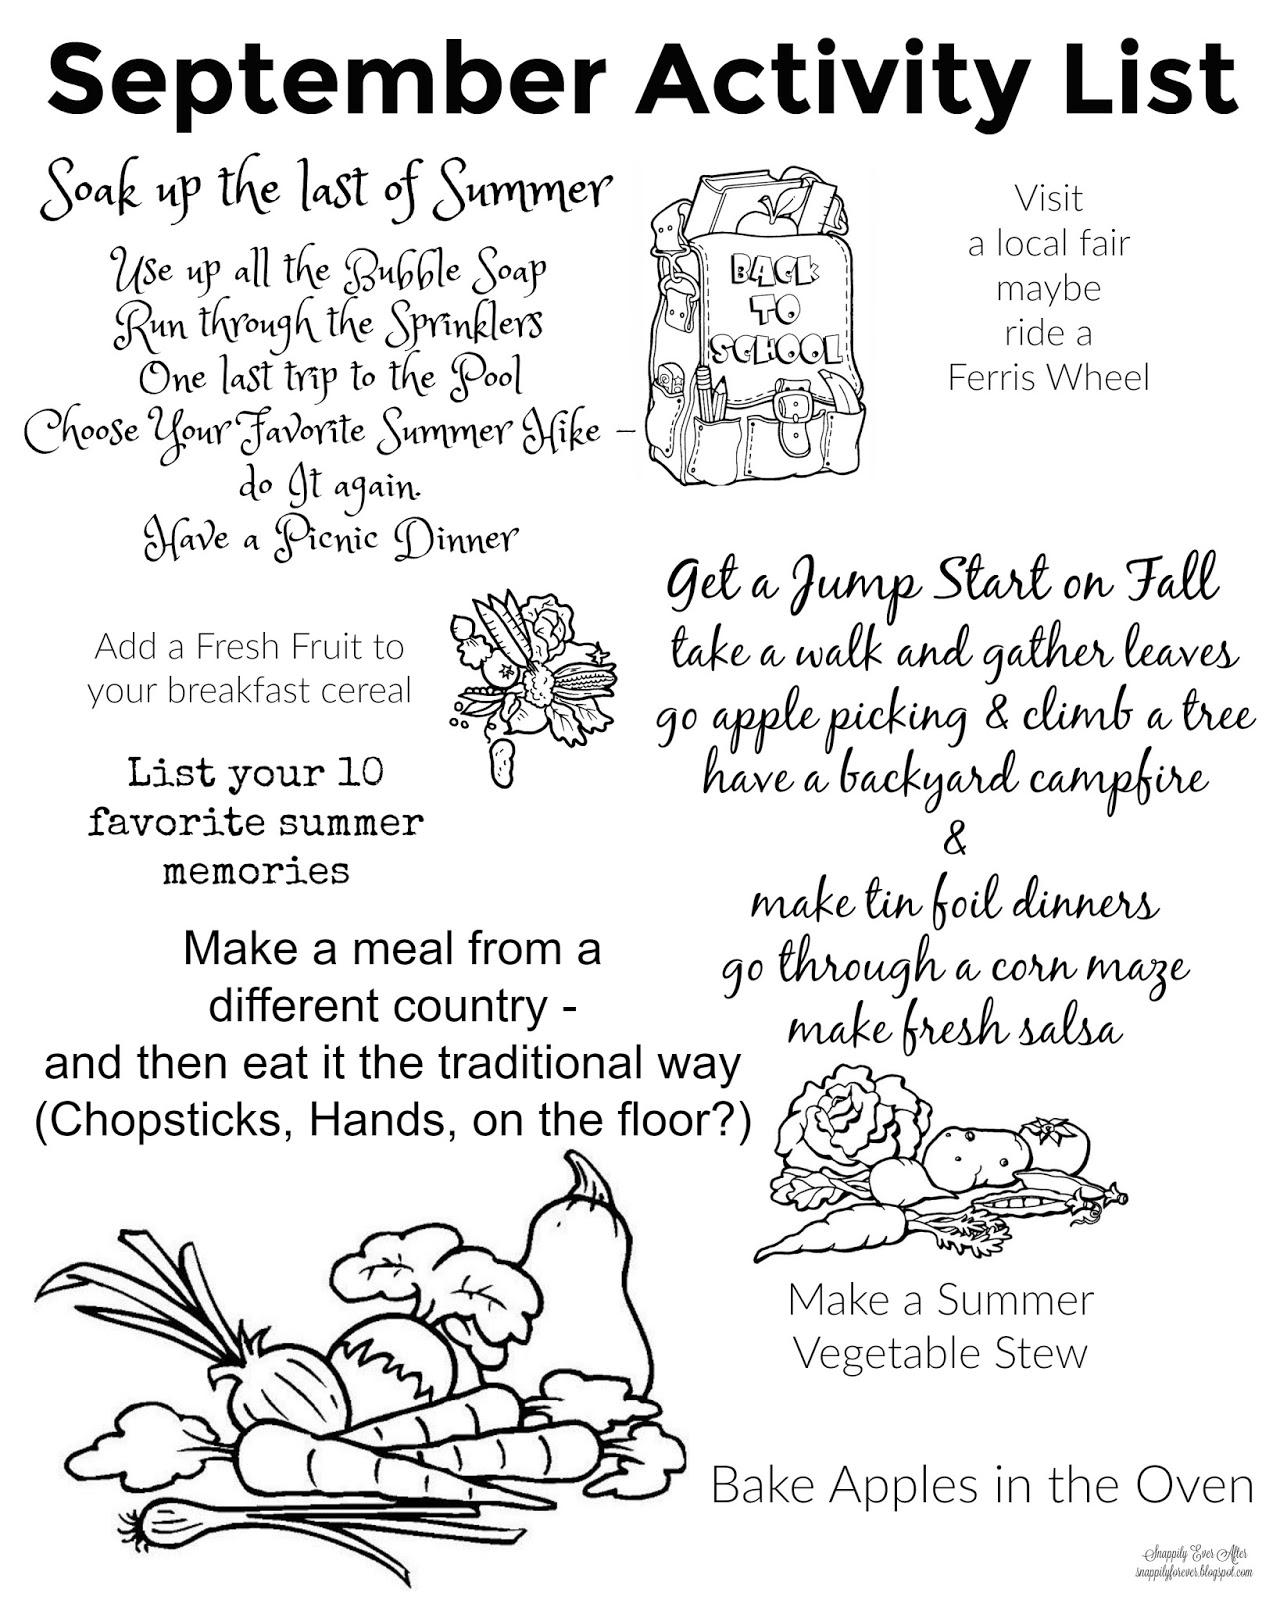 September Activity List
Soak up the last of Summer
Use up all the Bubble Soap
Run through the Sprinklers
One last trip to the Pool
Choose Your Favorite Summer Hike –
do It again.
Have a Picnic Dinner
BACK
TO
SCHOOL
Visit
a local fair
maybe
ride a
Ferris Wheel
Add a Fresh Fruit to
your breakfast cereal
List your 10
favorite summer
memories
Get a Jump Start on Fall
take a walk and gather leaves
go apple picking & climb a tree
have a backyard campfire
&
make tin foil dinners
go through a corn maze
make fresh salsa
Make a meal from a
different country -
and then eat it the traditional way
(Chopsticks, Hands, on the floor?)
Make a Summer
Vegetable Stew
Bake Apples in the Oven
Snappily Ever After
snappilyforever.blogspot.com